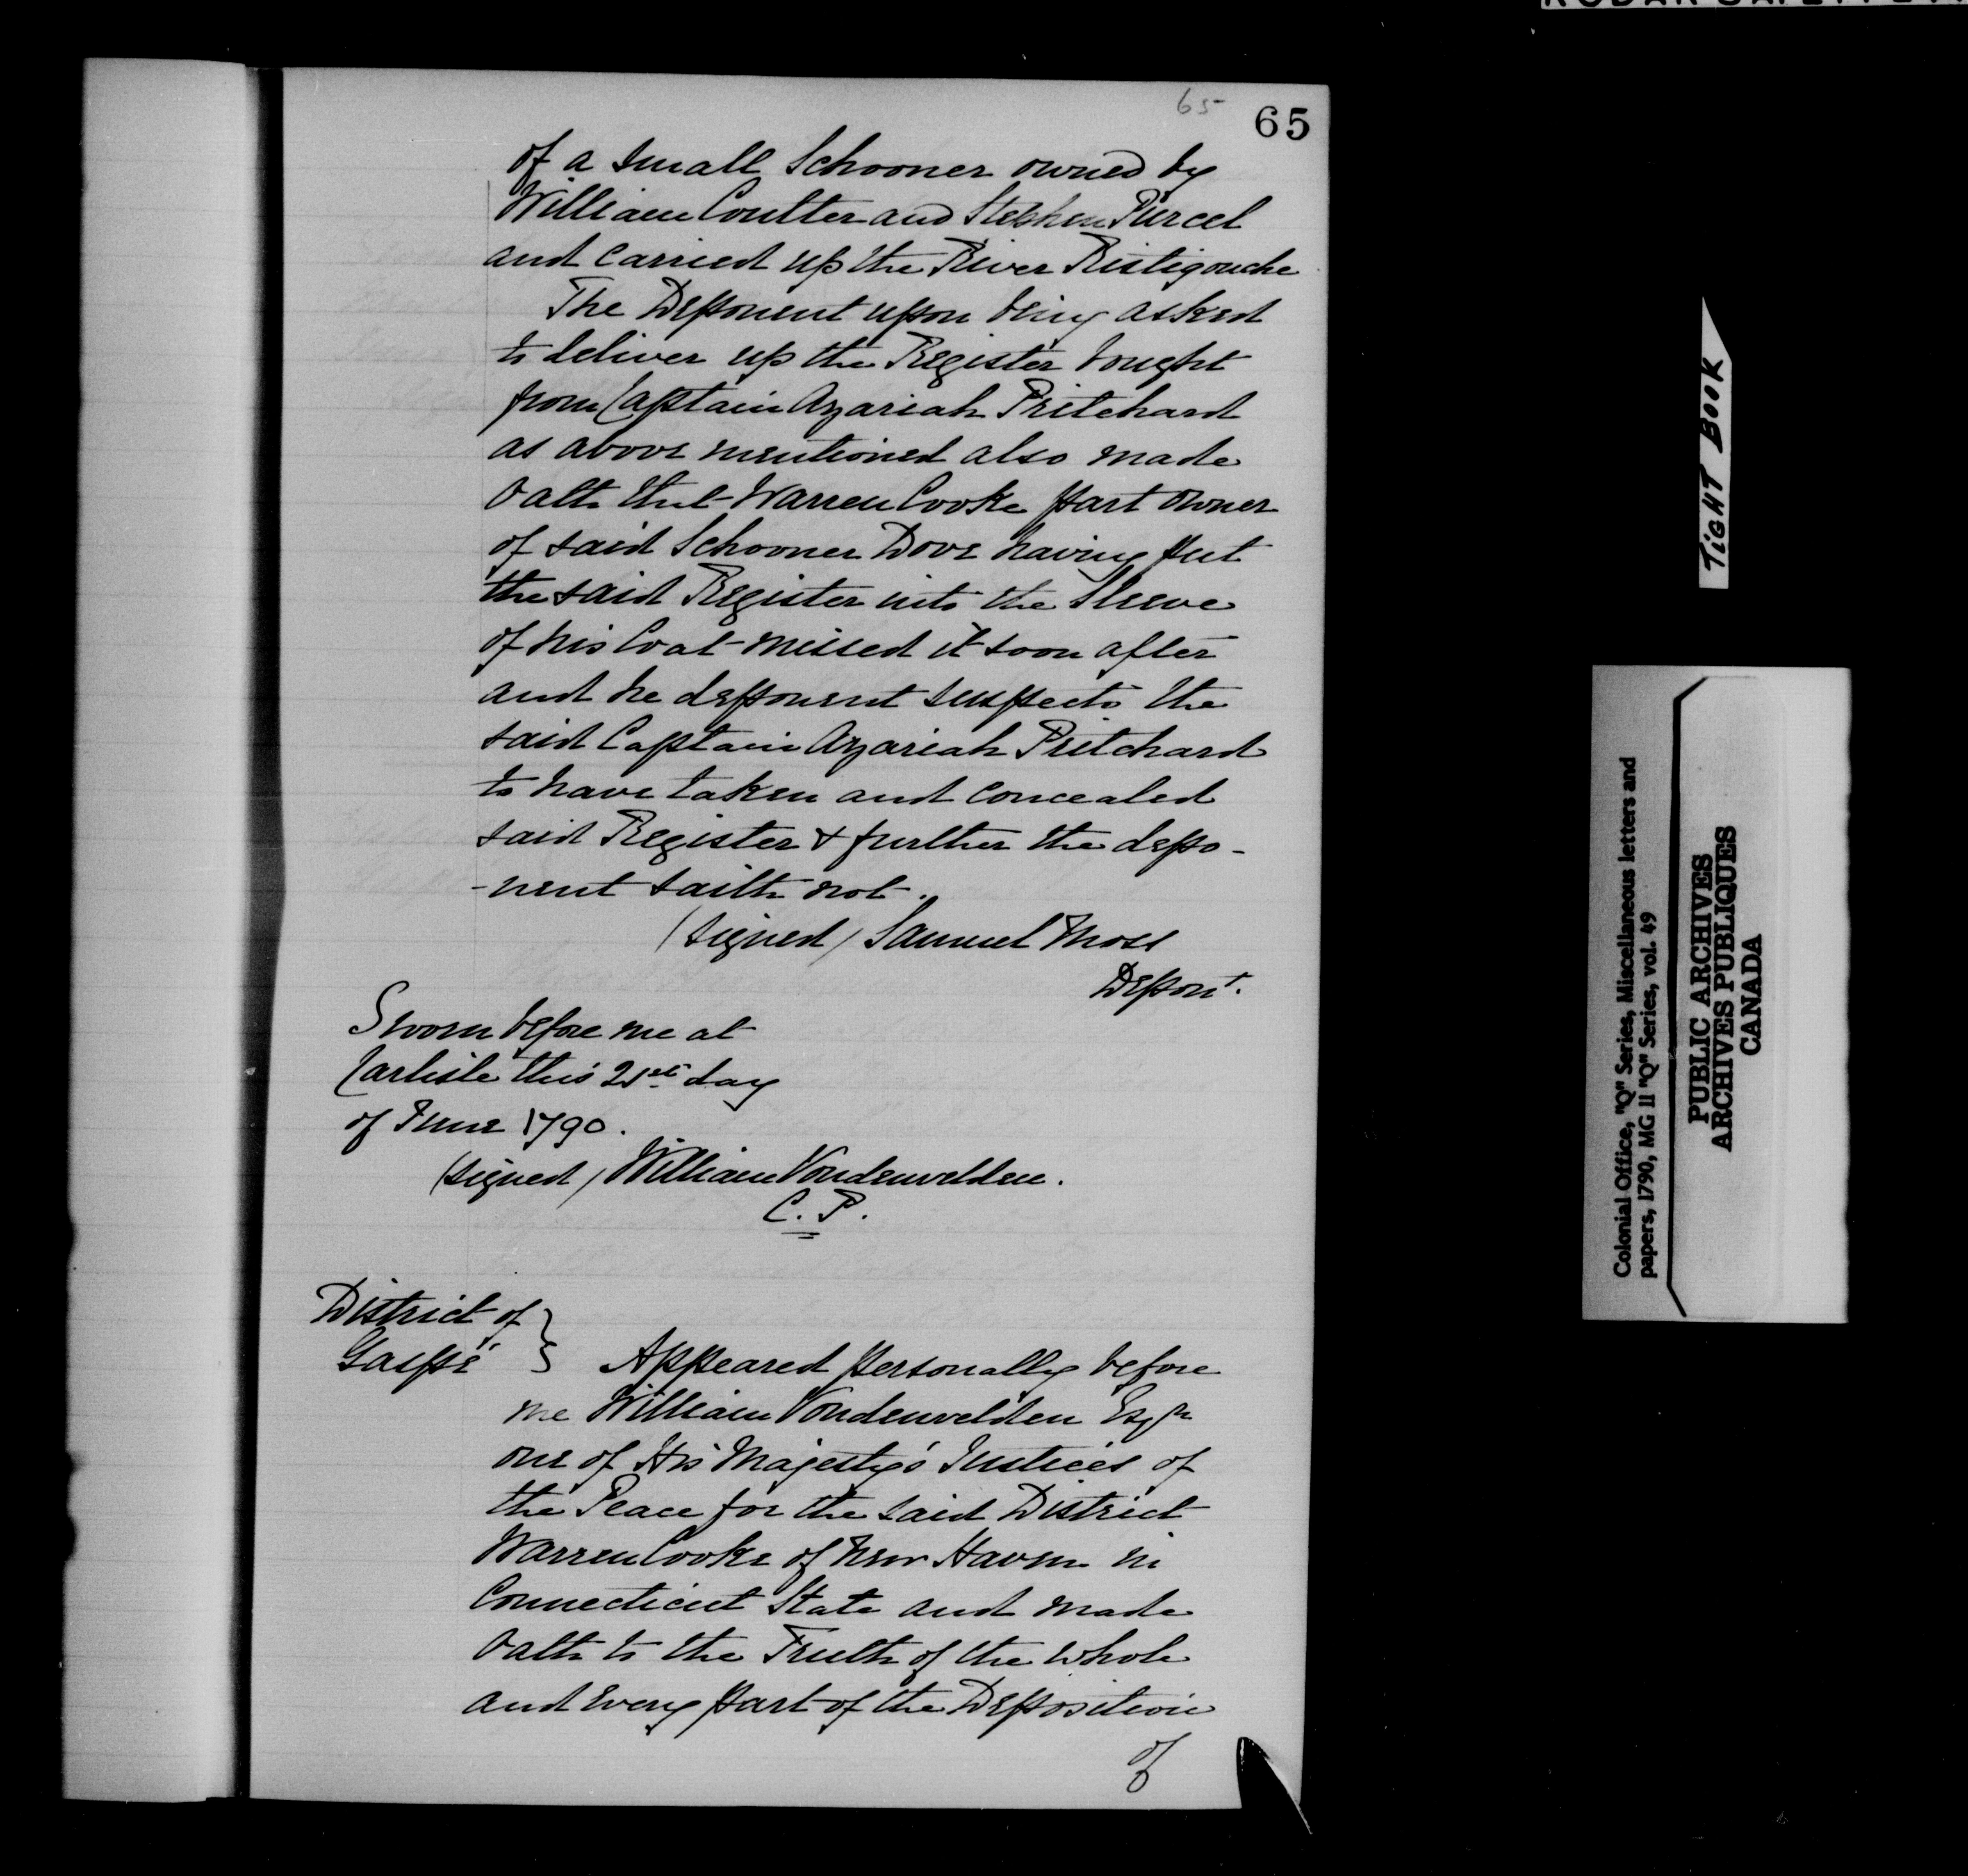 65
65
of a small Schooner owned by
William Coulter and Stephen Purcel
and carried up the River Ristigouche
The Deponent upon being asked
to deliver up the Register bought
from Captain Azariah Pritchard
as above mentioned also made
Oath that Warren Cooke part owner
of said Schooner Dove having put
the said Register into the Sleeve
of his Coat missed it soon after
and he deponent suspects the
said Captain Azariah Pritchard
to have taken and concealed
said Register & further the depo-
-nent saith not.
(signed) Samuel Moss
Depont.
Sworn before me at
Carlisle this 21st day
of June 1790.
(signed) William Vondenvelden.
C. P.
District of
Gaspé } Appeared personally before
me William Vondenvelden Esqre
one of His Majesty's Justices of
the Peace for the said District
Warren Cooke of New Haven in
Connecticut State and made
Oath to the Truth of the whole
and every part of the Deposition
of
TIGHT BOOK
Colonial Office, "Q" Series, Miscellaneous letters and
papers, 1790, MG 11 "Q" Series, vol. 49
PUBLIC ARCHIVES
ARCHIVES PUBLIQUES
CANADA